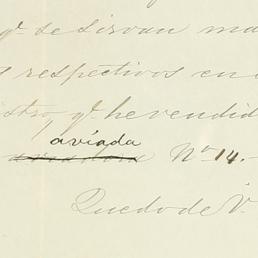 qe. se sirvan ma
s respectivos en
istro, qe. he vendid
aviada No 14.
Quedo de V.